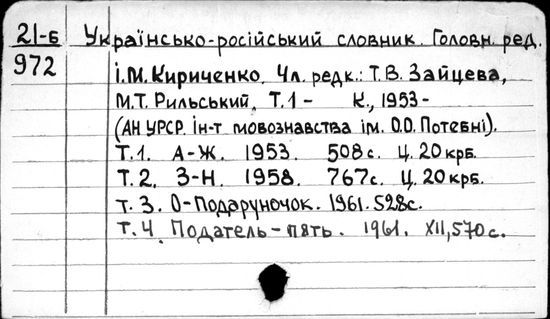 21-Б Українсько-російський словник. Головн. ред.
972 І.М. Кириченко. Чл. редк.: Т.В. Зайцева,
М.Т. Рильський. Т.1 - К., 1953 -
(АН УРСР. Ін-т мовознавства ім. О.О. Потебні).
Т.1. А-Ж. 1953. 508 с. Ц. 20 крб.
Т.2. З-Н. 1958. 767 с. Ц. 20 крб.
т. 3. О-Подаруночок. 1961. 528с.
т. 4. Податель - пять. 1961. XII, 570 с.